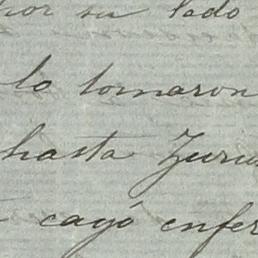 por su lado
lo tomaron
hasta Zuru
cayó enfer